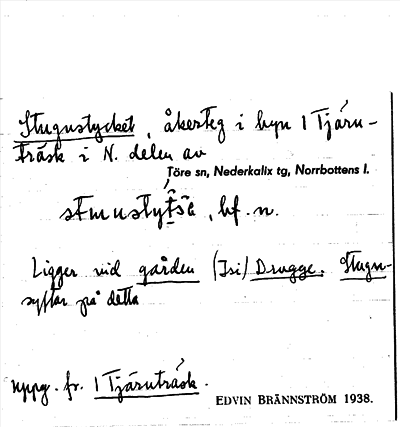 Stugustycket, åkerteg i byn 1 Tjäru-
träsk i N. delen av
Töre sn, Nederkalix tg, Norrbottens l.
bf. n.
Ligger vid gården (Isi) Drugge. Stugu-
syftar på detta
uppg. fr. 1 Tjäruträsk.
EDVIN BRÄNNSTRÖM 1938.